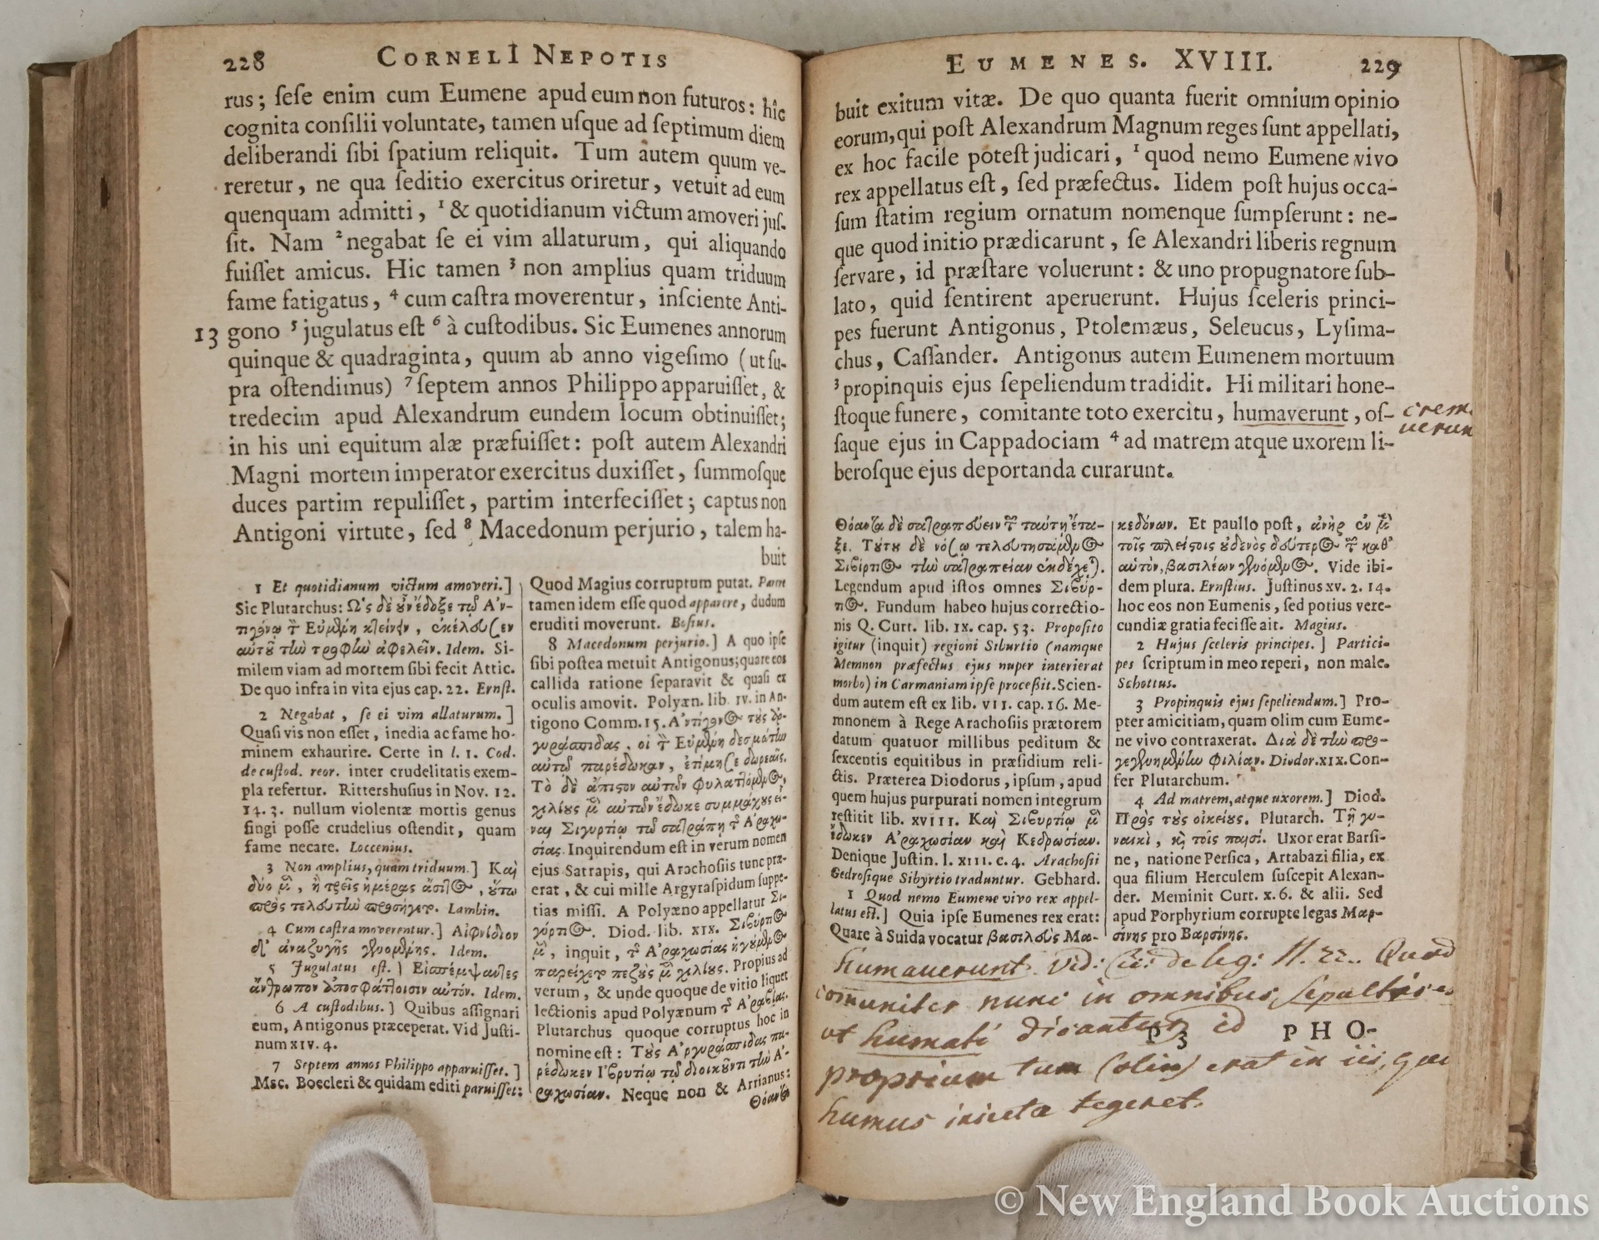 228 CORNELI NEPOTIS
rus; ſeſe enim cum Eumene apud eum non futuros: hîc
cognita conſilii voluntate, tamen uſque ad ſeptimum diem
deliberandi ſibi ſpatium reliquit. Tum autem quum ve-
reretur, ne qua ſeditio exercitus oriretur, vetuit ad eum
quenquam admitti, ¹ & quotidianum victum amoveri juſ-
ſit. Nam ² negabat ſe ei vim allaturum, qui aliquando
fuiſſet amicus. Hic tamen ³ non amplius quam triduum
fame fatigatus, ⁴ cum caſtra moverentur, inſciente Anti-
13 gono ⁵ jugulatus eſt ⁶ à cuſtodibus. Sic Eumenes annorum
quinque & quadraginta, quum ab anno vigeſimo (ut ſu-
pra oſtendimus) ⁷ ſeptem annos Philippo apparuiſſet, &
tredecim apud Alexandrum eundem locum obtinuiſſet;
in his uni equitum alæ præfuiſſet: poſt autem Alexandri
Magni mortem imperator exercitus duxiſſet, ſummoſque
duces partim repuliſſet, partim interfeciſſet; captus non
Antigoni virtute, ſed ⁸ Macedonum perjurio, talem ha-
buit
1 Et quotidianum victum amoveri.]
Sic Plutarchus:
Idem. Si-
milem viam ad mortem ſibi fecit Attic.
De quo infra in vita ejus cap. 22. Ernſt.
2 Negabat, ſe ei vim allaturum.]
Quaſi vis non eſſet, inedia ac fame ho-
minem exhaurire. Certe in l. 1. Cod.
de cuſtod. reor. inter crudelitatis exem-
pla refertur. Rittershuſius in Nov. 12.
14. 3. nullum violentæ mortis genus
fingi poſſe crudelius oſtendit, quam
fame necare. Loccenius.
3 Non amplius, quam triduum.] Καὶ
Lambin.
4 Cum caſtra moverentur.] Αἰφνίδιον
Idem.
5 Jugulatus eſt.]
Idem.
6 A cuſtodibus.] Quibus aſſignari
eum, Antigonus præceperat. Vid Juſti-
num XIV. 4.
7 Septem annos Philippo apparuiſſet.]
Msc. Boecleri & quidam editi paruiſſet:
Quod Magius corruptum putat. Parere
tamen idem eſſe quod apparere, dudum
eruditi moverunt. Boſius.
8 Macedonum perjurio.] A quo ipſe
ſibi poſtea metuit Antigonus; quare eos
callida ratione ſeparavit & quaſi ex
oculis amovit. Polyæn. lib. IV. in An-
tigono Comm. 15.
Inquirendum eſt in verum nomen
ejus Satrapis, qui Arachoſiis tunc præ-
erat, & cui mille Argyraſpidum ſuppe-
tias miſſi. A Polyæno appellatur
Diod. lib. XIX.
inquit,
Propius ad
verum, & unde quoque de vitio liquet
lectionis apud Polyænum
Plutarchus quoque corruptus hoc in
nomine eſt:
Neque non & Arrianus:
EUMENES. XVIII. 229
buit exitum vitæ. De quo quanta fuerit omnium opinio
eorum, qui poſt Alexandrum Magnum reges ſunt appellati,
ex hoc facile poteſt judicari, ¹ quod nemo Eumene vivo
rex appellatus eſt, ſed præfectus. Iidem poſt hujus occa-
ſum ſtatim regium ornatum nomenque ſumpſerunt: ne-
que quod initio prædicarunt, ſe Alexandri liberis regnum
ſervare, id præſtare voluerunt: & uno propugnatore ſub-
lato, quid ſentirent aperuerunt. Hujus ſceleris princi-
pes fuerunt Antigonus, Ptolemæus, Seleucus, Lyſima-
chus, Caſſander. Antigonus autem Eumenem mortuum
³ propinquis ejus ſepeliendum tradidit. Hi militari hone-
ſtoque funere, comitante toto exercitu, humaverunt, oſ-
crem
uerun
ſaque ejus in Cappadociam ⁴ ad matrem atque uxorem li-
beroſque ejus deportanda curarunt.
Legendum apud iſtos omnes
Fundum habeo hujus correctio-
nis Q. Curt. lib. IX. cap. 53. Propoſito
igitur (inquit) regioni Siburtio (namque
Memnon præfectus ejus nuper interierat
morbo) in Carmaniam ipſe proceßit. Scien-
dum autem eſt ex lib. VII. cap. 16. Me-
mnonem à Rege Arachoſiis prætorem
datum quatuor millibus peditum &
ſexcentis equitibus in præſidium reli-
ctis. Præterea Diodorus, ipſum, apud
quem hujus purpurati nomen integrum
reſtitit lib. XVIII.
Ἀραχωσίαν καὶ Κεδρωσίαν.
Denique Juſtin. l. XIII. c. 4. Arachoſii
Gedroſique Sibyrtio traduntur. Gebhard.
1 Quod nemo Eumene vivo rex appel-
latus eſt.] Quia ipſe Eumenes rex erat:
Quare à Suida vocatur βασιλεὺς Μα-
κεδόνων. Et paullo poſt,
Vide ibi-
dem plura. Ernſtius. Juſtinus XV. 2. 14.
hoc eos non Eumenis, ſed potius vere-
cundiæ gratia feciſſe ait. Magius.
2 Hujus ſceleris principes.] Partici-
pes ſcriptum in meo reperi, non male.
Schottus.
3 Propinquis ejus ſepeliendum.] Pro-
pter amicitiam, quam olim cum Eume-
ne vivo contraxerat.
Diodor. XIX. Con-
fer Plutarchum.
4 Ad matrem, atque uxorem.] Diod.
Πρὸς τοὺς οἰκείους. Plutarch. Τῇ γυ-
ναικὶ, καὶ τοῖς παισί. Uxor erat Barſi-
ne, natione Perſica, Artabazi filia, ex
qua filium Herculem ſuſcepit Alexan-
der. Meminit Curt. X. 6. & alii. Sed
apud Porphyrium corrupte legas Μαρ-
σίνης pro Βαρσίνης.
humauerunt. vid: Cic: de leg: II. 22. Quod
comuniter nunc in omnibus sepultis
ut humati dicantur, id
P 3 PHO-
proprium tum (olim) erat in iis, quos
humus iniecta tegeret.
© New England Book Auctions